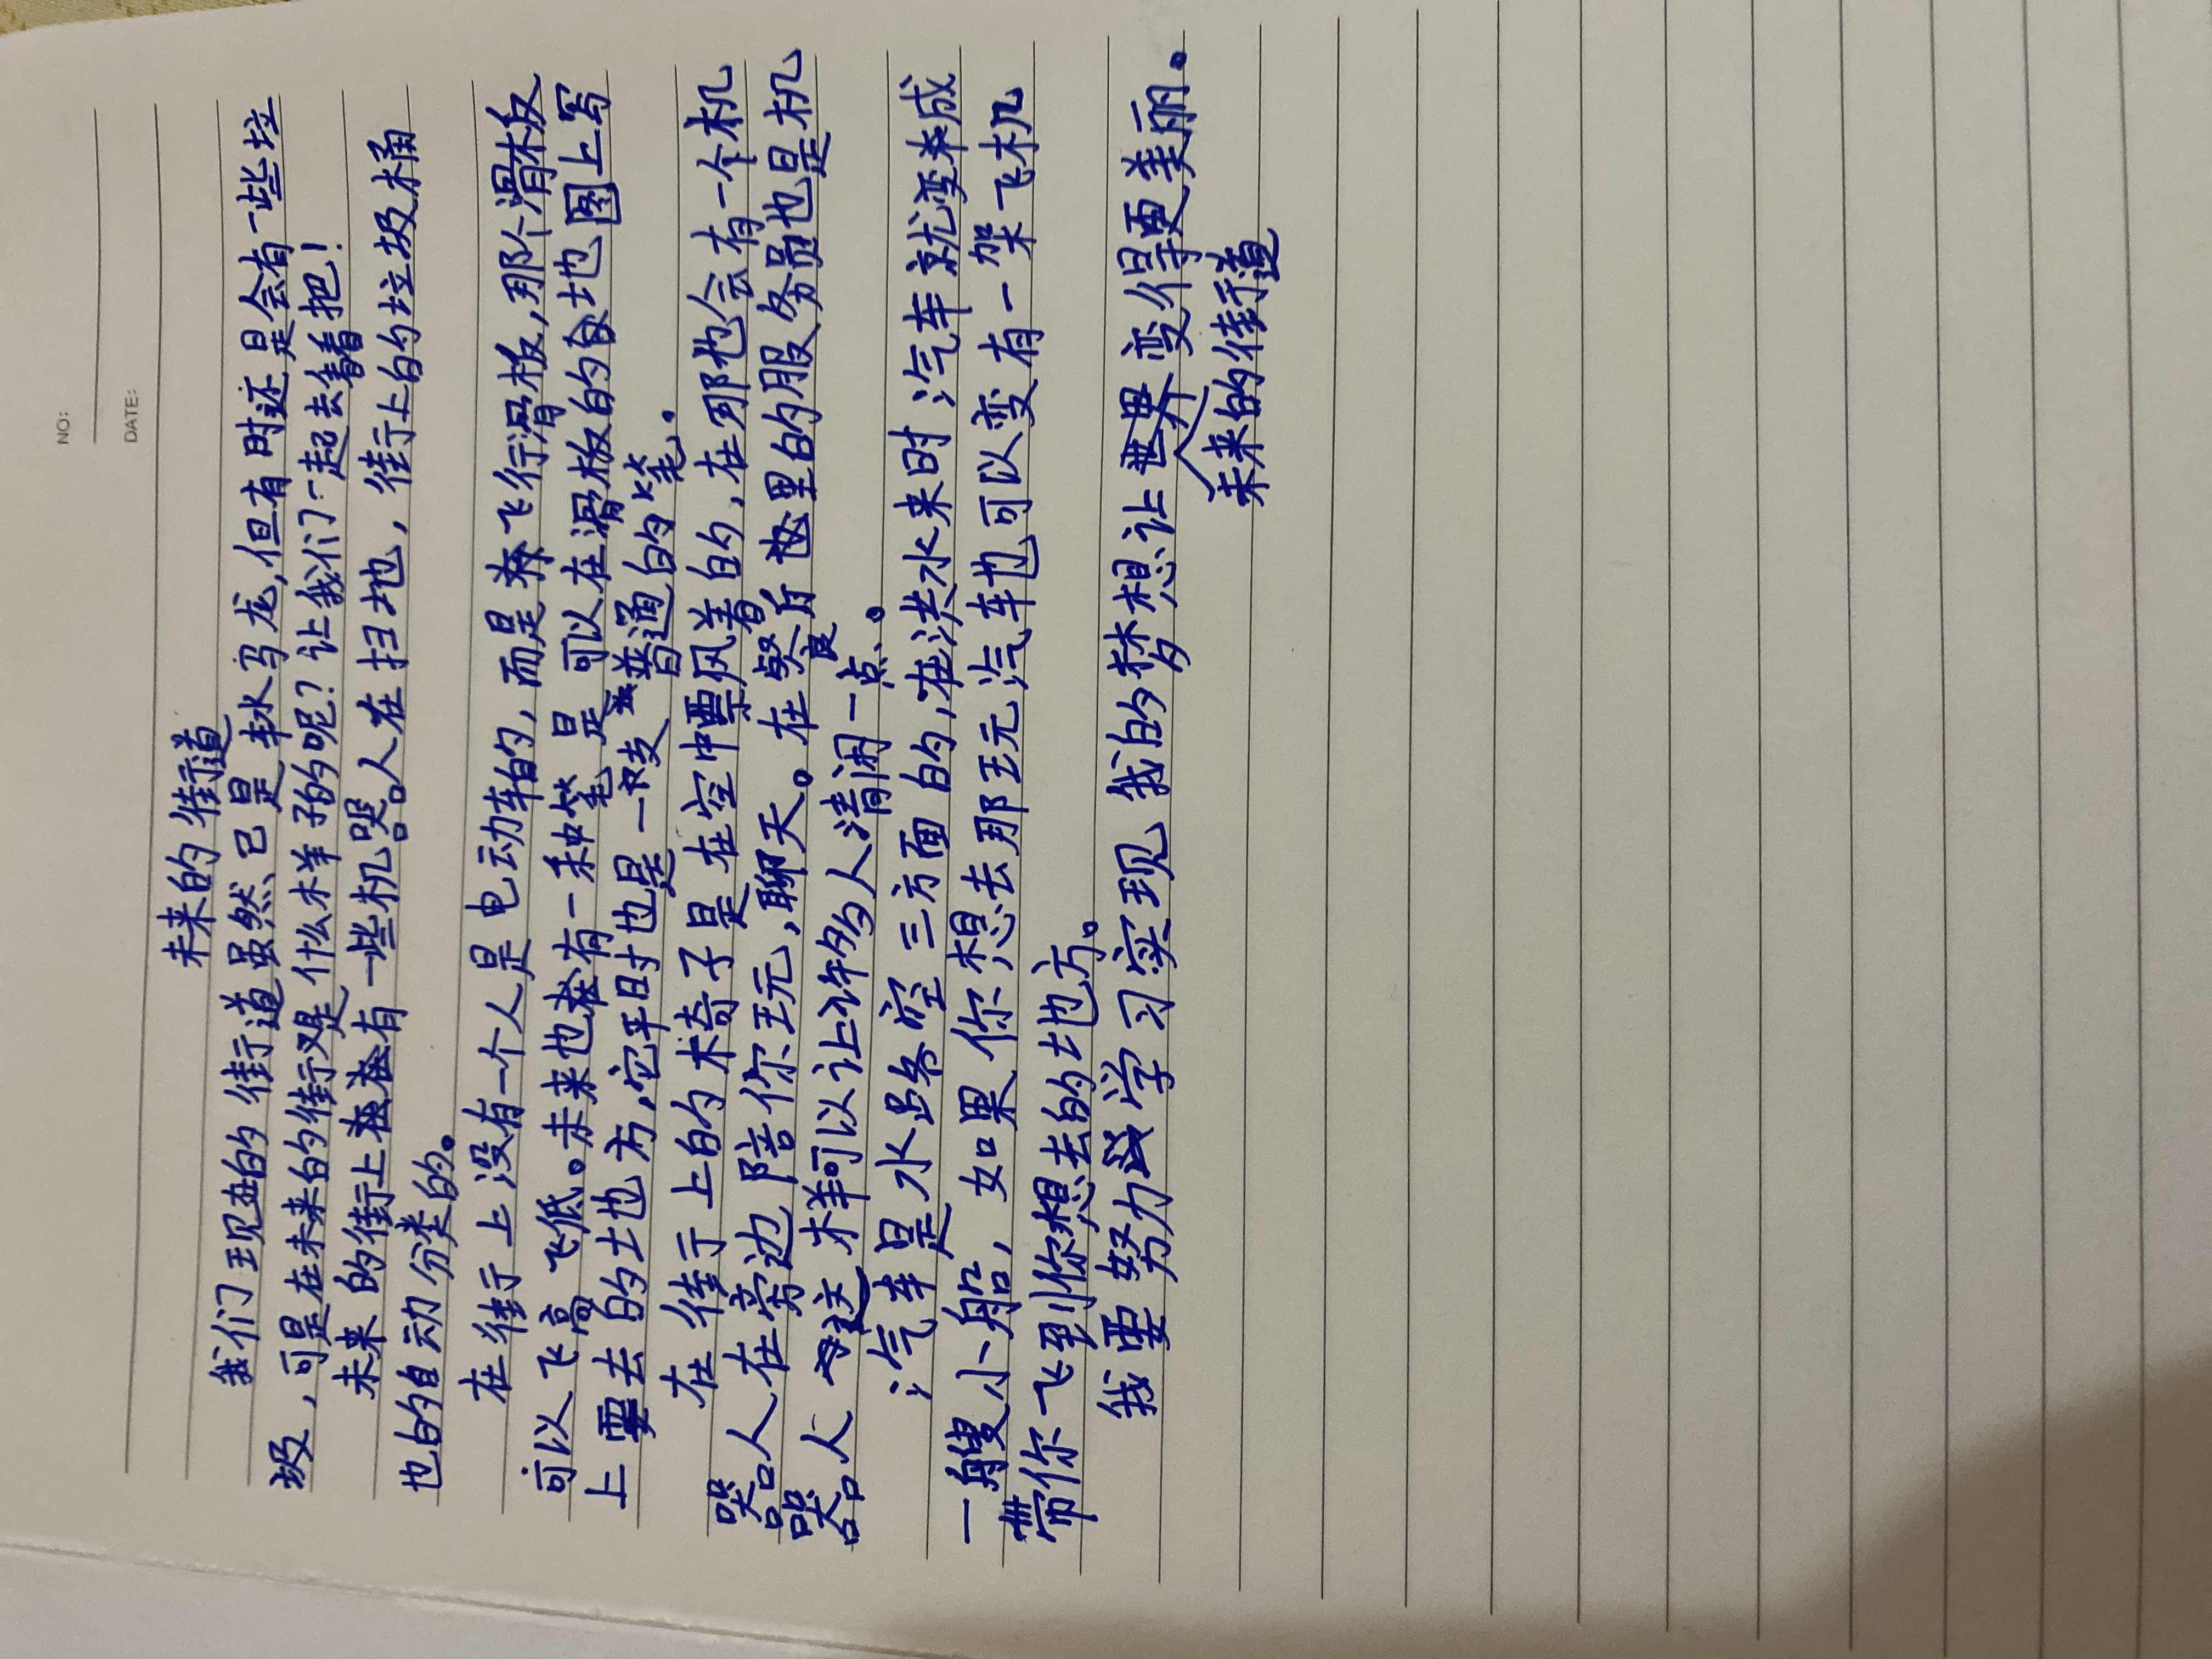 NO:
DATE:
未来的街道
我们现在的街道虽然已是车水马龙,但有时还是会有一些垃
圾,可是在未来的街又是什么样子的呢?让我们一起去看看把!
未来的街上有一些机器人在扫地,街上的垃圾桶
也的自动分类的。
在街上没有一个人是电动车的,而是飞行滑板,那个滑板
可以飞高飞低。未来也有一种笔是可以在滑板的食地图上写
上要去的地方,它平时也是一支普通的笔。
在街上的椅子是在空中飘着的,在那也会有一个机
器人在旁边陪你玩,聊天。在餐厅里的服务员也是机
器人这样可以让许多人清闲一点。
汽车是水路空三方面的,在洪水来时汽车就变成
一艘小船,如果你想去那玩汽车也可以变有一架飞机
带你飞到你想去的地方。
我要努力学习实现我的梦想让世界变得更美丽。
未来的街道